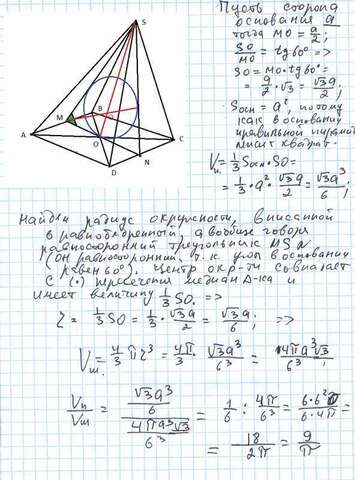 Пусть сторона
основания a
тогда MO = a/2;
SO/MO = tg60° =>
SO = MO·tg60° =
= a/2·√3 = √3a/2;
Sосн = a², потому
как в основании
правильной пирамиды
лежит квадрат.
Vп. = 1/3 Sосн·SO =
= 1/3·a²·√3a/2 = √3a³/6;
S
M
B
A
O
C
D
N
Найдём радиус окружности, вписанной
в равнобедренный, а вообще говоря
равносторонний треугольник MSN
(он равносторонний, т.к. угол в основании
равен 60°). Центр окр-ти совпадает
с (·) пересечения медиан Δ-ка и
имеет величину 1/3 SO. =>
r = 1/3 SO = 1/3·√3a/2 = √3a/6; =>
Vш. = 4/3 πr³ = 4π/3·√3a³/6³ = 4πa³√3/6³;
Vп/Vш = (√3a³/6)/(4πa³√3/6³) = 1/6 : 4π/6³ = 6·6²/6·4π =
= 18/2π = 9/π